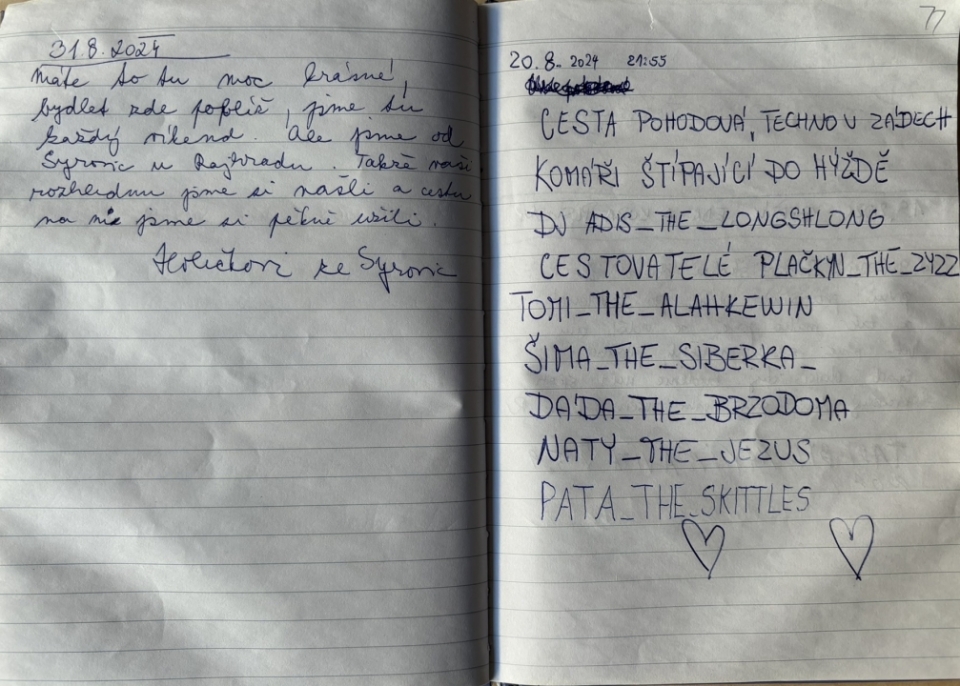 31.8.2024
Máte to tu moc krásné,
bydlet zde poblíž, jsme tu
každý víkend. Ale jsme od
Syrovic u Rajhradu. Takže naši
rozhlednu jsme si našli a cestu
na ni jsme si pěkně užili.
ze Syrovic
77
20.8. 2024 21:55
CESTA POHODOVÁ, TECHNO V ZÁDECH
KOMÁŘI ŠTÍPAJÍCÍ DO HÝŽDĚ
DJ ADIS_THE_LONGSHLONG
CESTOVATELÉ PLAČKYN_THE_ZYZZ
TOMI_THE_ALAHKEWIN
ŠIMA_THE_SIBERKA_
DÁDA_THE_BRZODOMA
NATY_THE_JEZUS
PATA_THE_SKITTLES